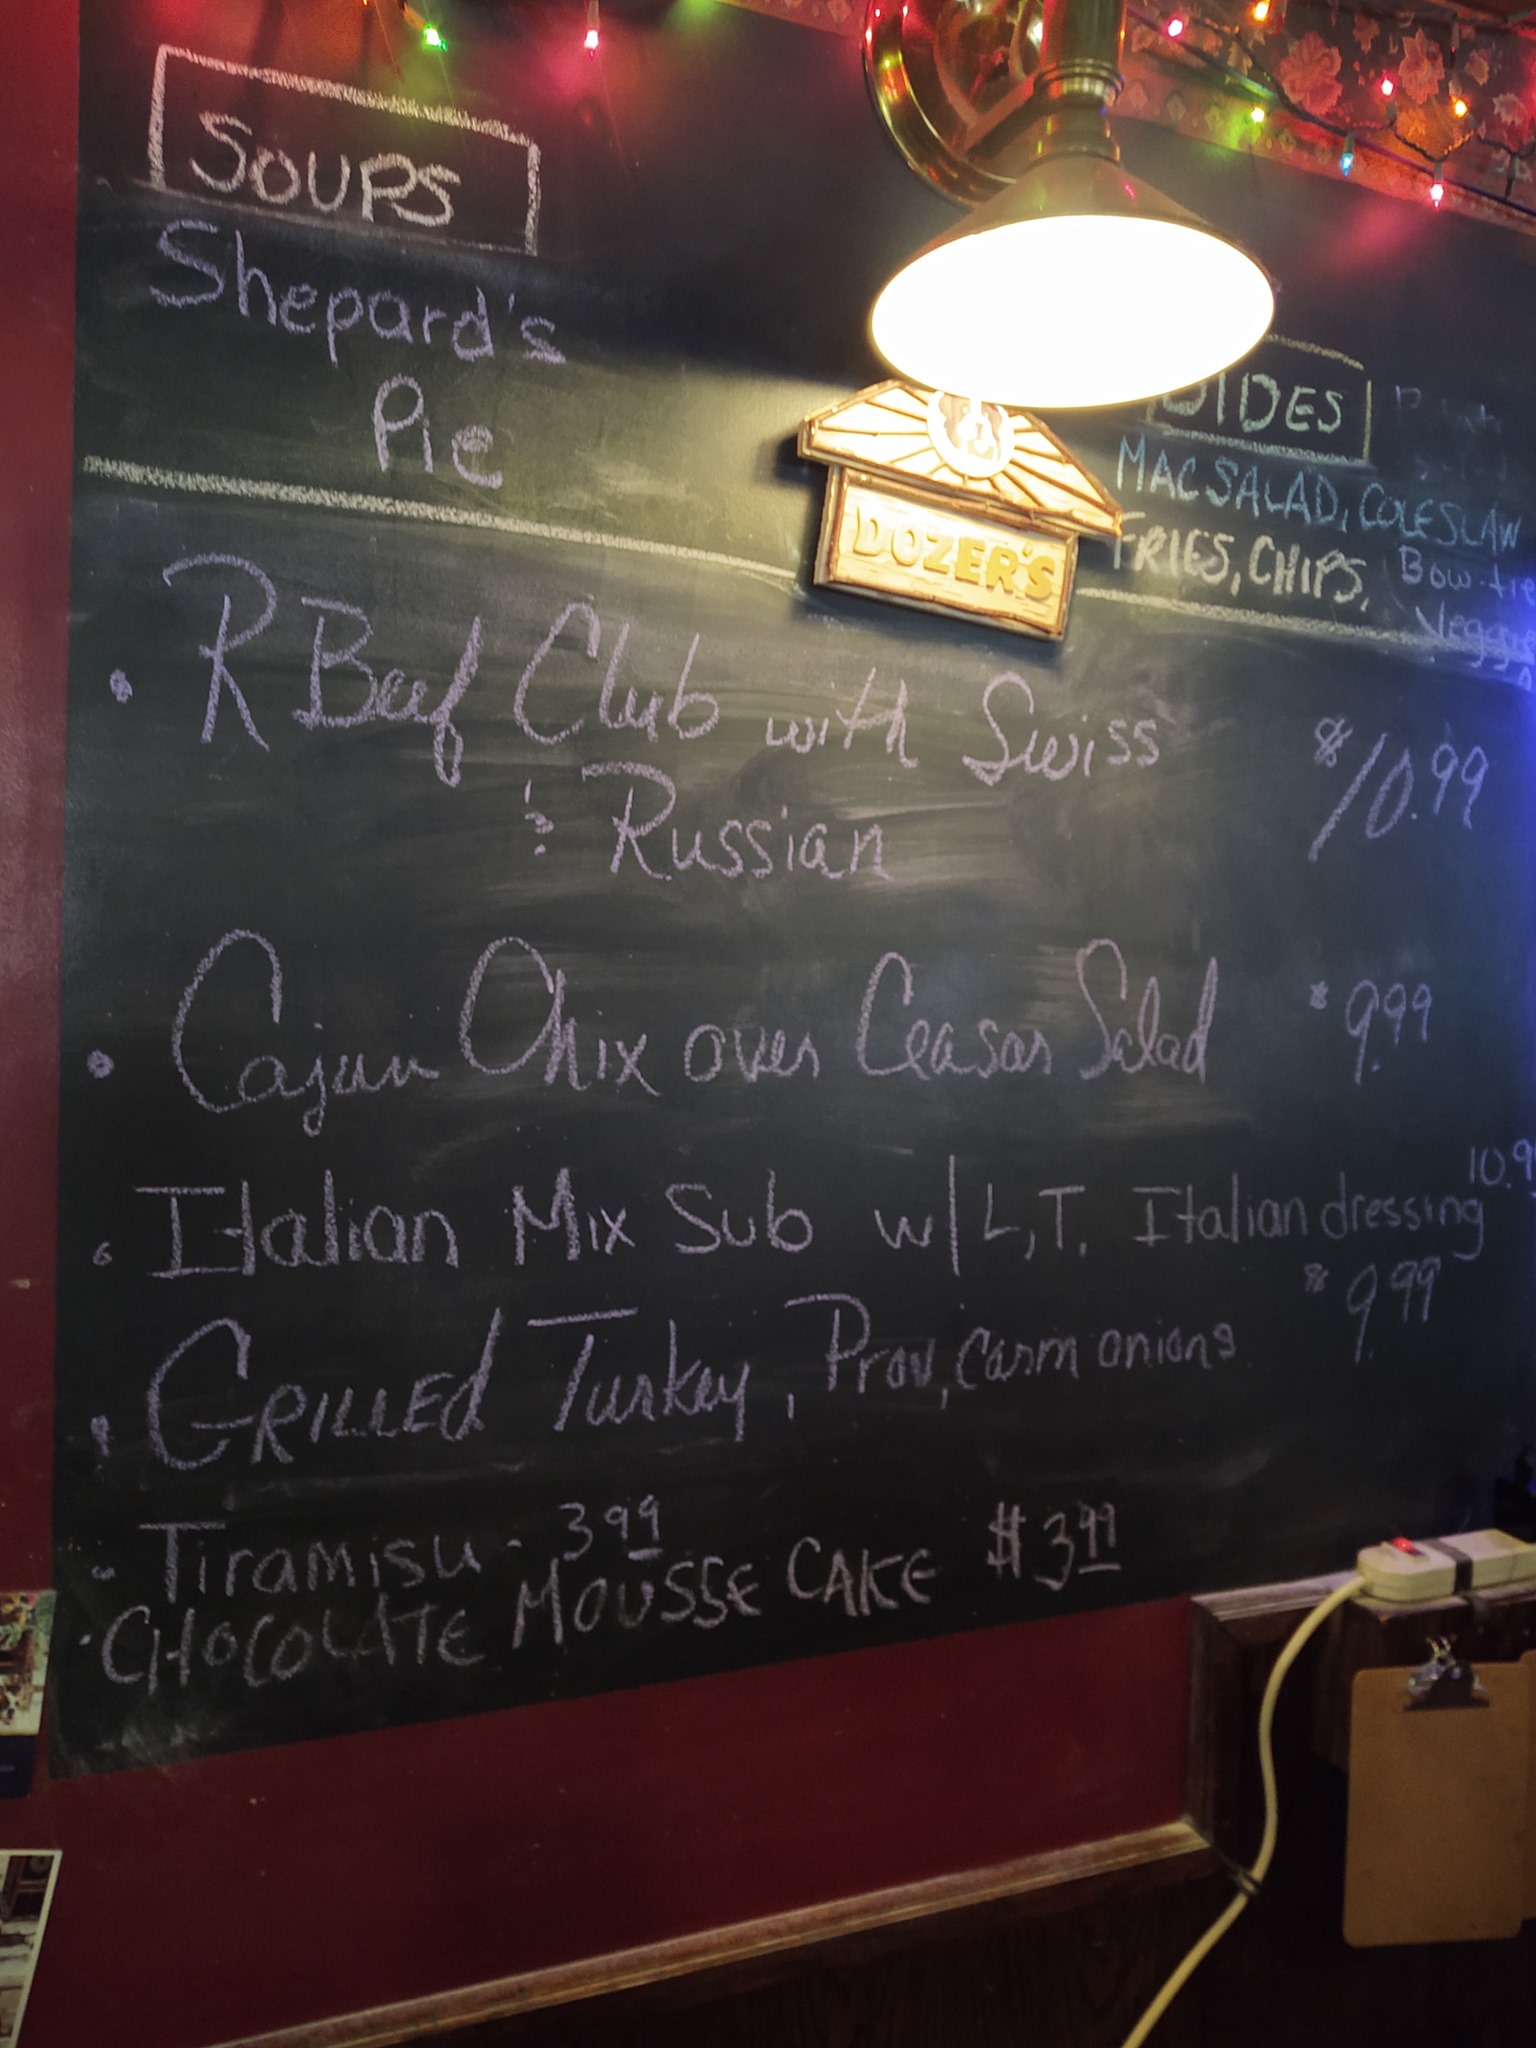 SOUPS
Shepard's
Pie
SIDES
MAC SALAD, COLESLAW
FRIES, CHIPS, Bow-tie
Veggie
DOZER'S
R Beef Club with Swiss $10.99
& Russian
Cajun Chix over Ceasar Salad $9.99
10.9
Italian Mix Sub w/ L, T. Italian dressing
GRILLEd Turkey, Prov, carm onions $9.99
Tiramisu - 3.99
CHOCOLATE MOUSSE CAKE $3.99